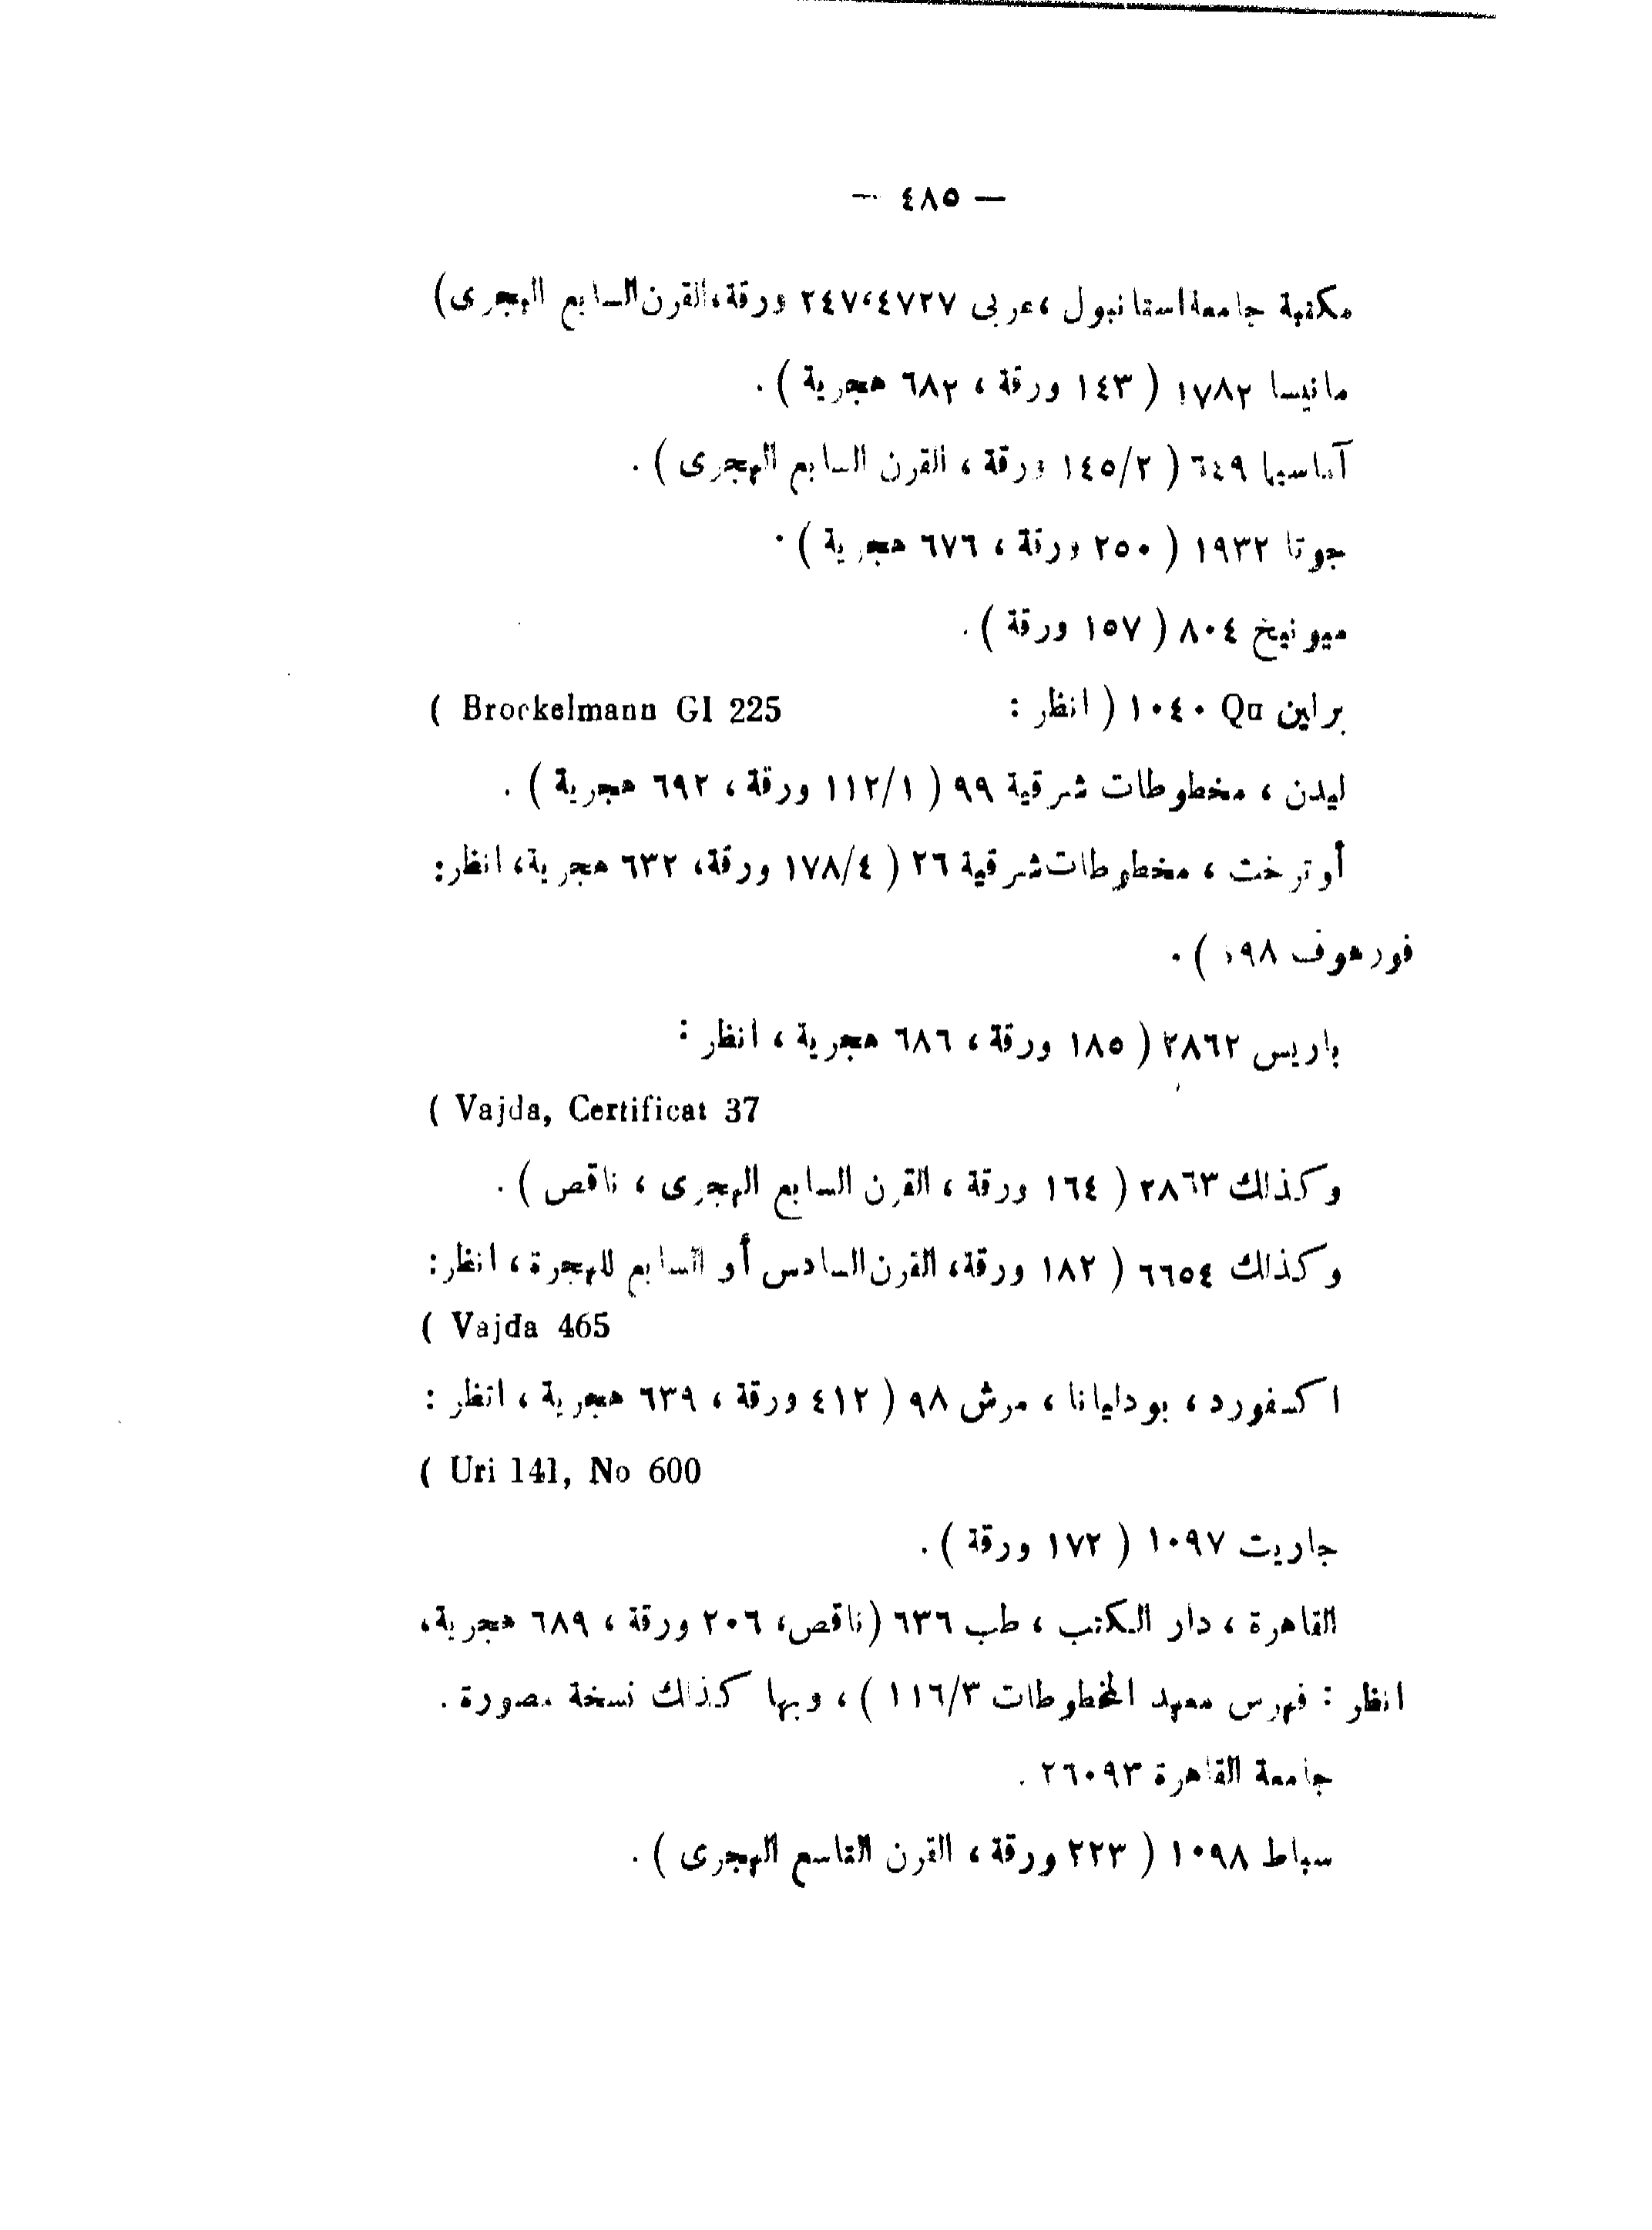 — ٤٨٥ —
مكتبة جامعة استانبول ، عربى ٤٧٢٧ ، ٢٤٧ ورقة ، القرن السابع الهجرى )
مانيسا ١٧٨٢ ( ١٤٣ ورقة ، ٦٨٢ هجرية ) .
آماسيا ٦٤٩ ( ١٤٥/٢ ورقة ، القرن السابع الهجرى ) .
جوتا ١٩٣٢ ( ٢٥٠ ورقة ، ٦٧٦ هجرية ) .
ميونيخ ٨٠٤ ( ١٥٧ ورقة ) .
برلين Qu ١٠٤٠ ( انظر : Brockelmann GI 225 )
ليدن ، مخطوطات شرقية ٩٩ ( ١١٢/١ ورقة ، ٦٩٢ هجرية ) .
أوترخت ، مخطوطات شرقية ٢٦ ( ١٧٨/٤ ورقة ، ٦٣٢ هجرية ، انظر :
فورهوف ) .
باريس ٢٨٦٢ ( ١٨٥ ورقة ، ٦٨٦ هجرية ، انظر :
Vajda, Certificat 37 )
وكذلك ٢٨٦٣ ( ١٦٤ ورقة ، القرن السابع الهجرى ، ناقص ) .
وكذلك ٦٦٥٤ ( ١٨٢ ورقة ، القرن السادس أو السابع للهجرة ، انظر :
Vajda 465 )
اكسفورد ، بودليانا ، مرش ٩٨ ( ٤١٢ ورقة ، ٦٣٩ هجرية ، انظر :
Uri 141, No 600 )
جاريت ١٠٩٧ ( ١٧٢ ورقة ) .
القاهرة ، دار الكتب ، طب ٦٣٦ ( ناقص ، ٢٠٦ ورقة ، ٦٨٩ هجرية ،
انظر : فهرس معهد المخطوطات ١١٦/٣ ) ، وبها كذلك نسخة مصورة .
جامعة القاهرة ٢٦٠٩٣ .
سباط ١٠٩٨ ( ٢٢٣ ورقة ، القرن التاسع الهجرى ) .